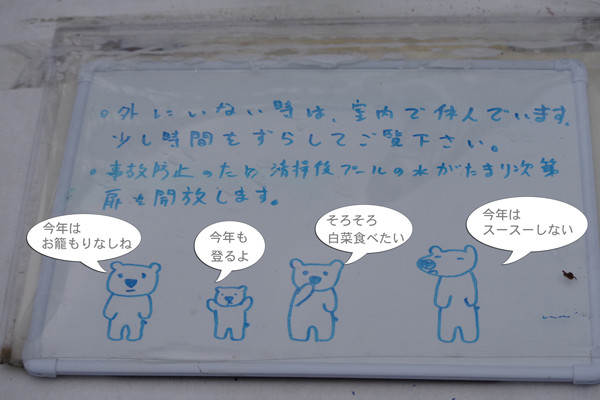 ・外にいない時は、室内で休んでいます。
少し時間をずらしてご覧下さい。
・事故防止のため清掃後プールの水がたまり次第
扉を開放します。
今年は
お籠もりなしね
今年も
登るよ
そろそろ
白菜食べたい
今年は
スースーしない